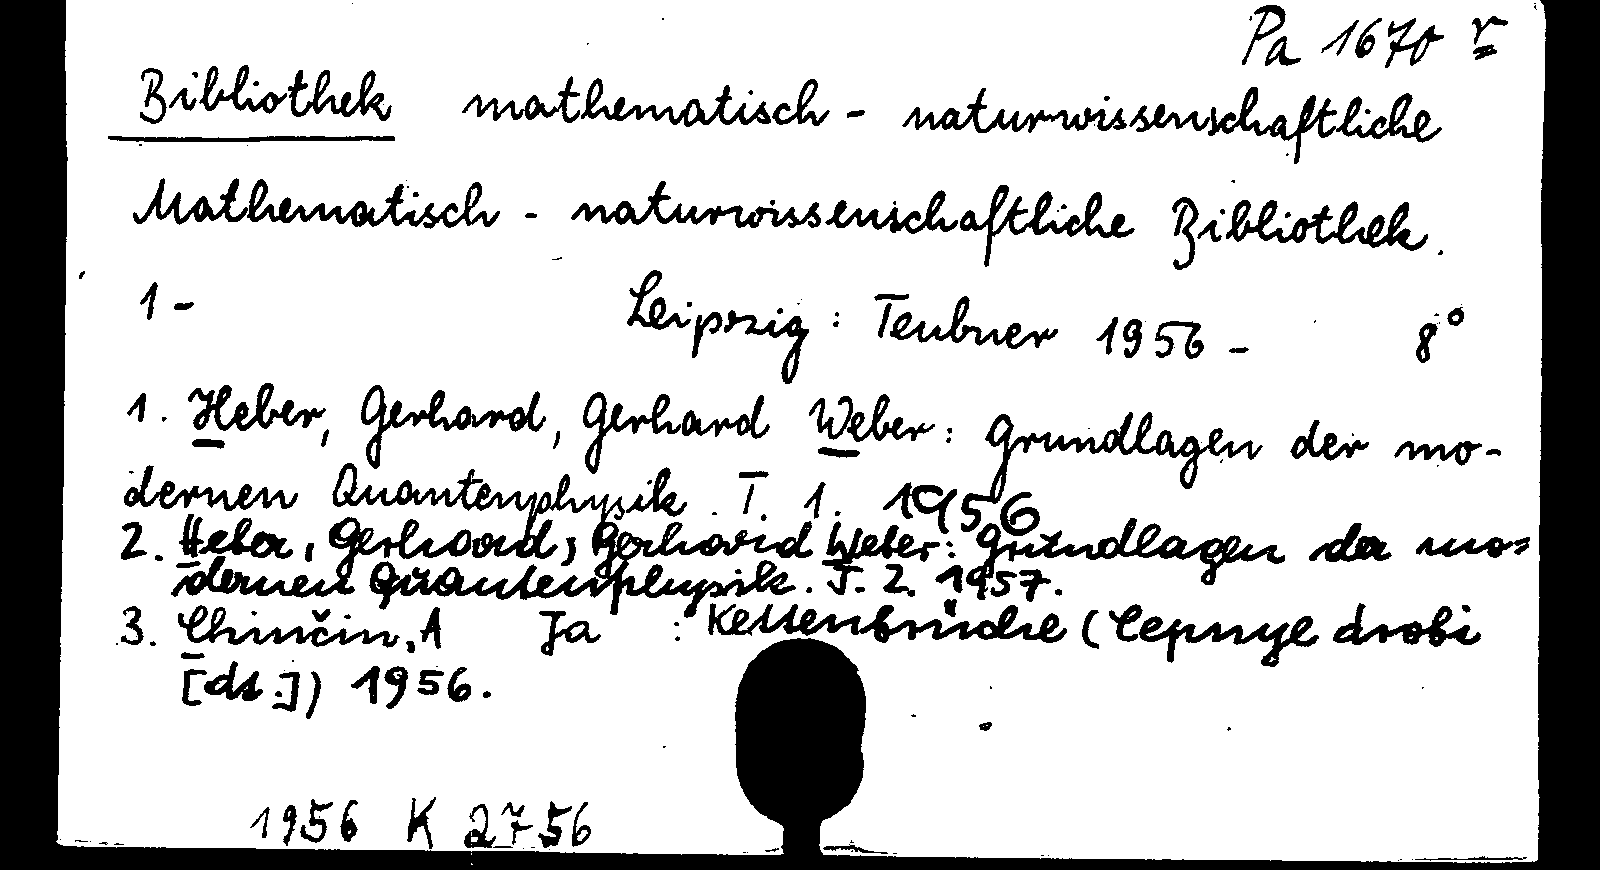 Pa 1670 r
Bibliothek mathematisch - naturwissenschaftliche
Mathematisch - naturwissenschaftliche Bibliothek.
1 - Leipzig : Teubner 1956 - 8°
1. Heber, Gerhard, Gerhard Weber : Grundlagen der mo-
dernen Quantenphysik. T. 1. 1956
2. Heber, Gerhard, Gerhard Weber: Grundlagen der mo=
dernen Quantenphysik. T. 2. 1957.
3. Chinčin, A Ja : Kettenbrüche (Cepnye drobi
[dt.]) 1956.
1956 K 2756